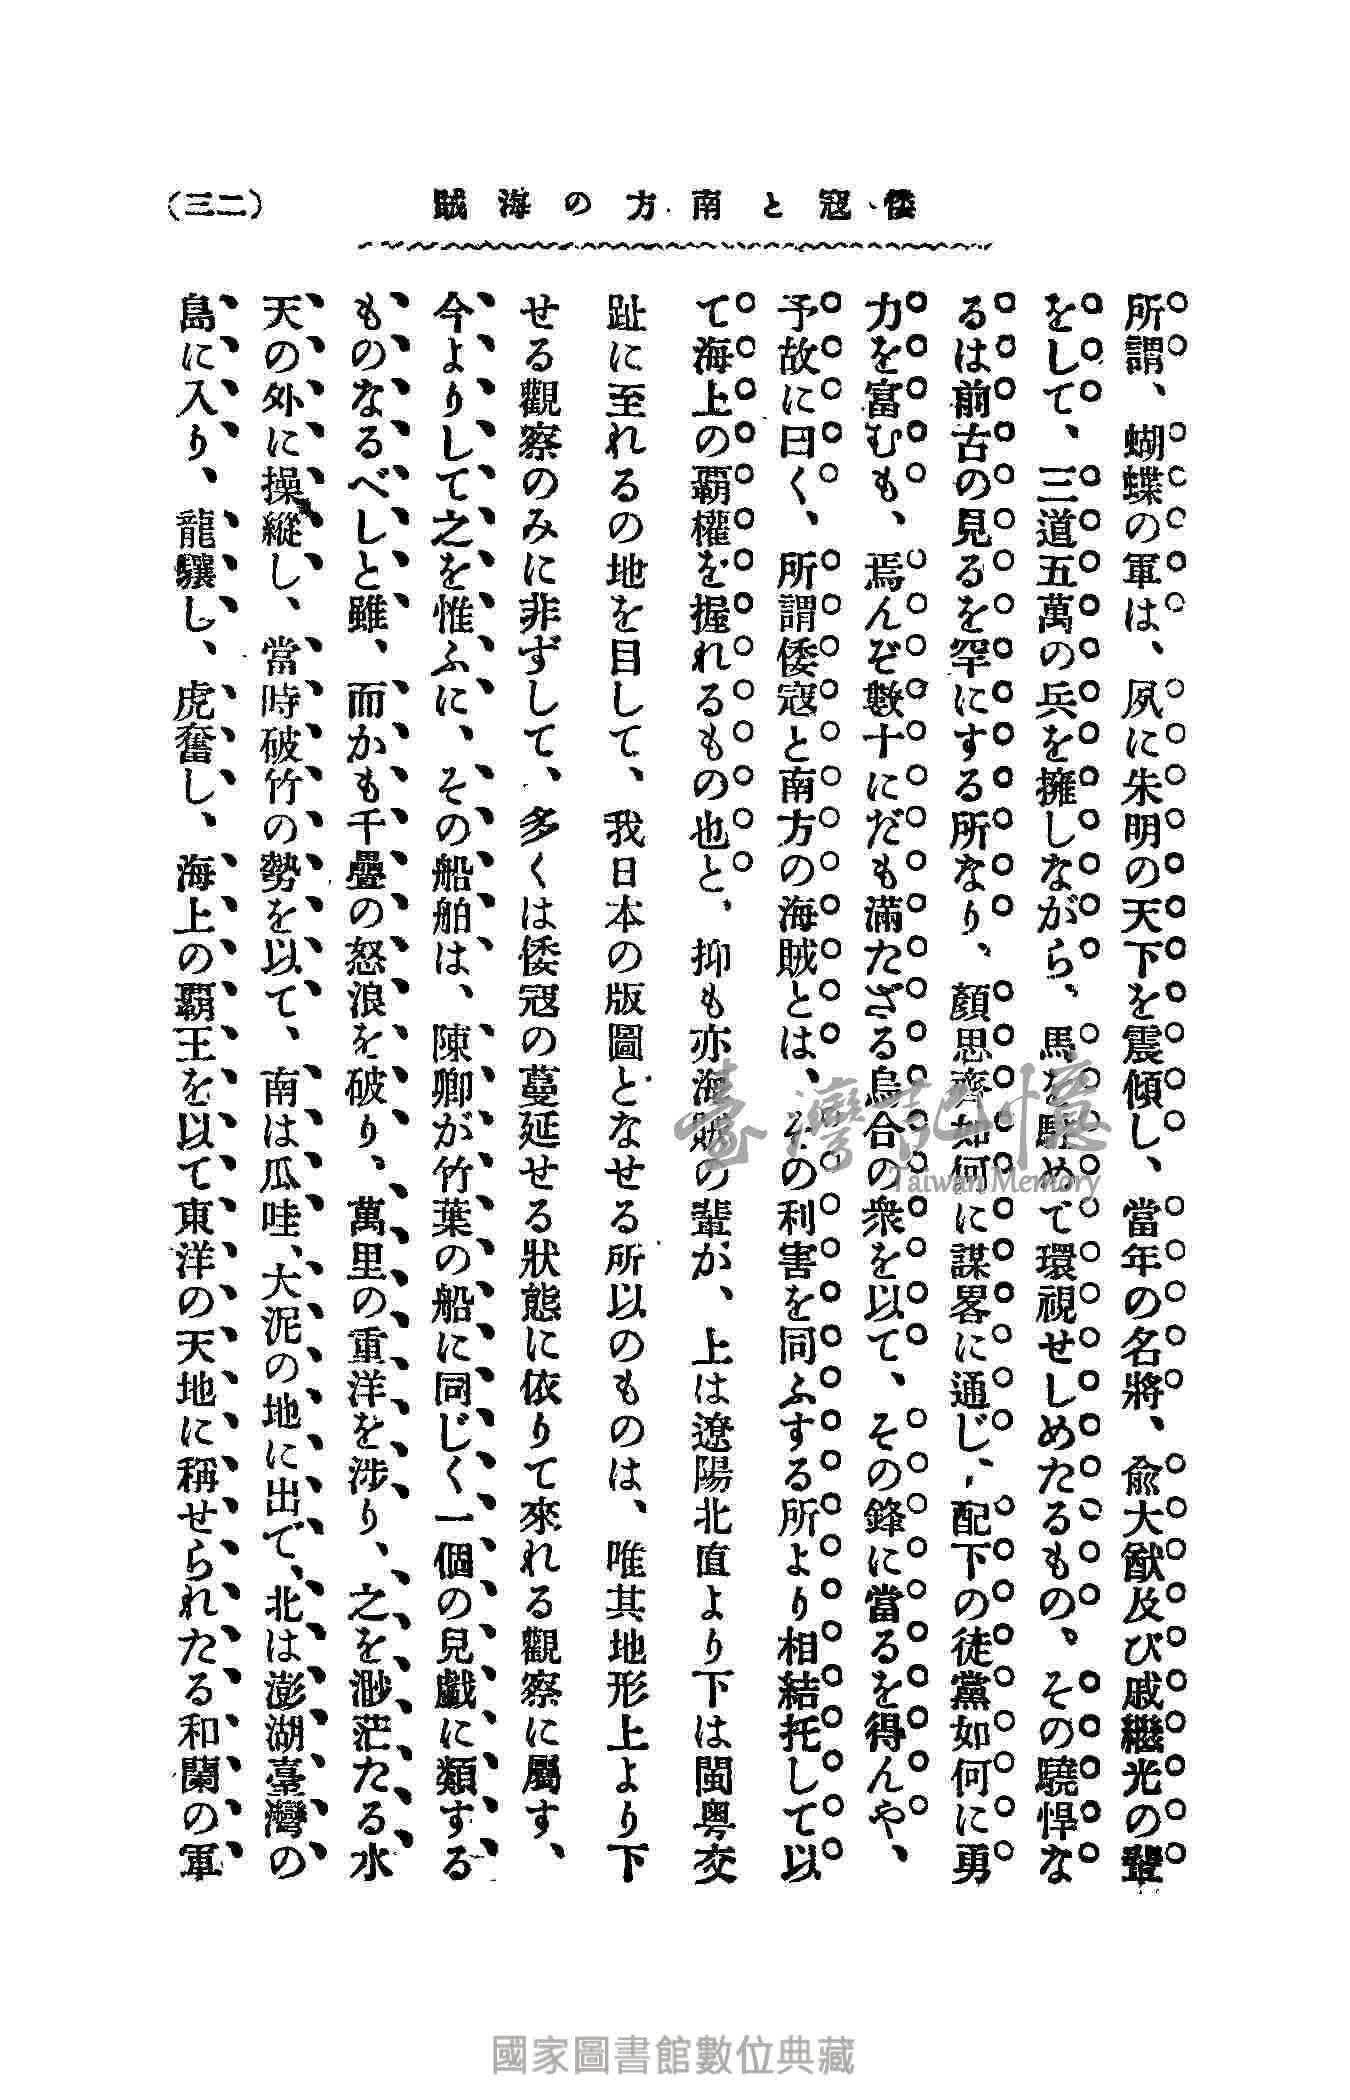 倭寇と南方の海賊
(二三)
所謂、蝴蝶の軍は、夙に朱明の天下を震傾し、當年の名將、兪大猷及び戚繼光の輩
をして、三道五萬の兵を擁しながら、馬を駐めて環視せしめたるもの、その驍悍な
るは前古の見るを罕にする所なり、顏思齊如何に謀畧に通じ、配下の徒黨如何に勇
力を富むも、焉んぞ數十にだも滿たざる烏合の衆を以て、その鋒に當るを得んや、
予故に曰く、所謂倭寇と南方の海賊とは、その利害を同ふする所より相結托して以
て海上の覇權を握れるもの也と、抑も亦海賊の輩が、上は遼陽北直より下は閩粤交
趾に至れるの地を目して、我日本の版圖となせる所以のものは、唯其地形上より下
せる觀察のみに非ずして、多くは倭寇の蔓延せる狀態に依りて來れる觀察に屬す、
今よりして之を惟ふに、その船舶は、陳卿が竹葉の船に同じく一個の兒戲に類する
ものなるべしと雖、而かも千疊の怒浪を破り、萬里の重洋を涉り、之を渺茫たる水
天の外に操縱し、當時破竹の勢を以て、南は瓜哇、大泥の地に出で、北は澎湖臺灣の
島に入り、龍驤し、虎奮し、海上の覇王を以て東洋の天地に稱せられたる和蘭の軍
臺灣記憶
Taiwan Memory
國家圖書館數位典藏